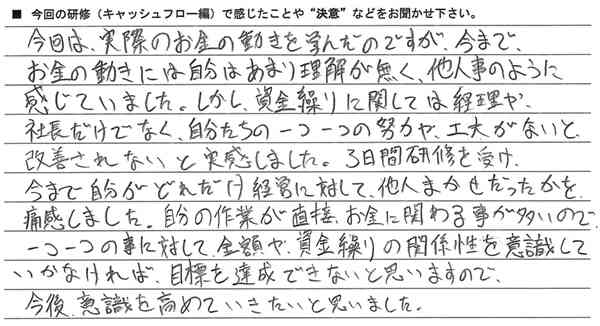 ■ 今回の研修（キャッシュフロー編）で感じたことや“決意”などをお聞かせ下さい。
今回は、実際のお金の動きを学んだのですが、今まで、
お金の動きには自分はあまり理解が無く、他人事のように
感じていました。しかし、資金繰りに関しては経理や、
社長だけでなく、自分たちの一つ一つの努力や、工夫がないと、
改善されないと実感しました。3日間研修を受け、
今まで自分がどれだけ経営に対して、他人まかせだったかを、
痛感しました。自分の作業が直接、お金に関わる事が多いので、
一つ一つの事に対して、金額や、資金繰りの関係性を意識して
いかなければ、目標を達成できないと思いますので、
今後、意識を高めていきたいと思いました。